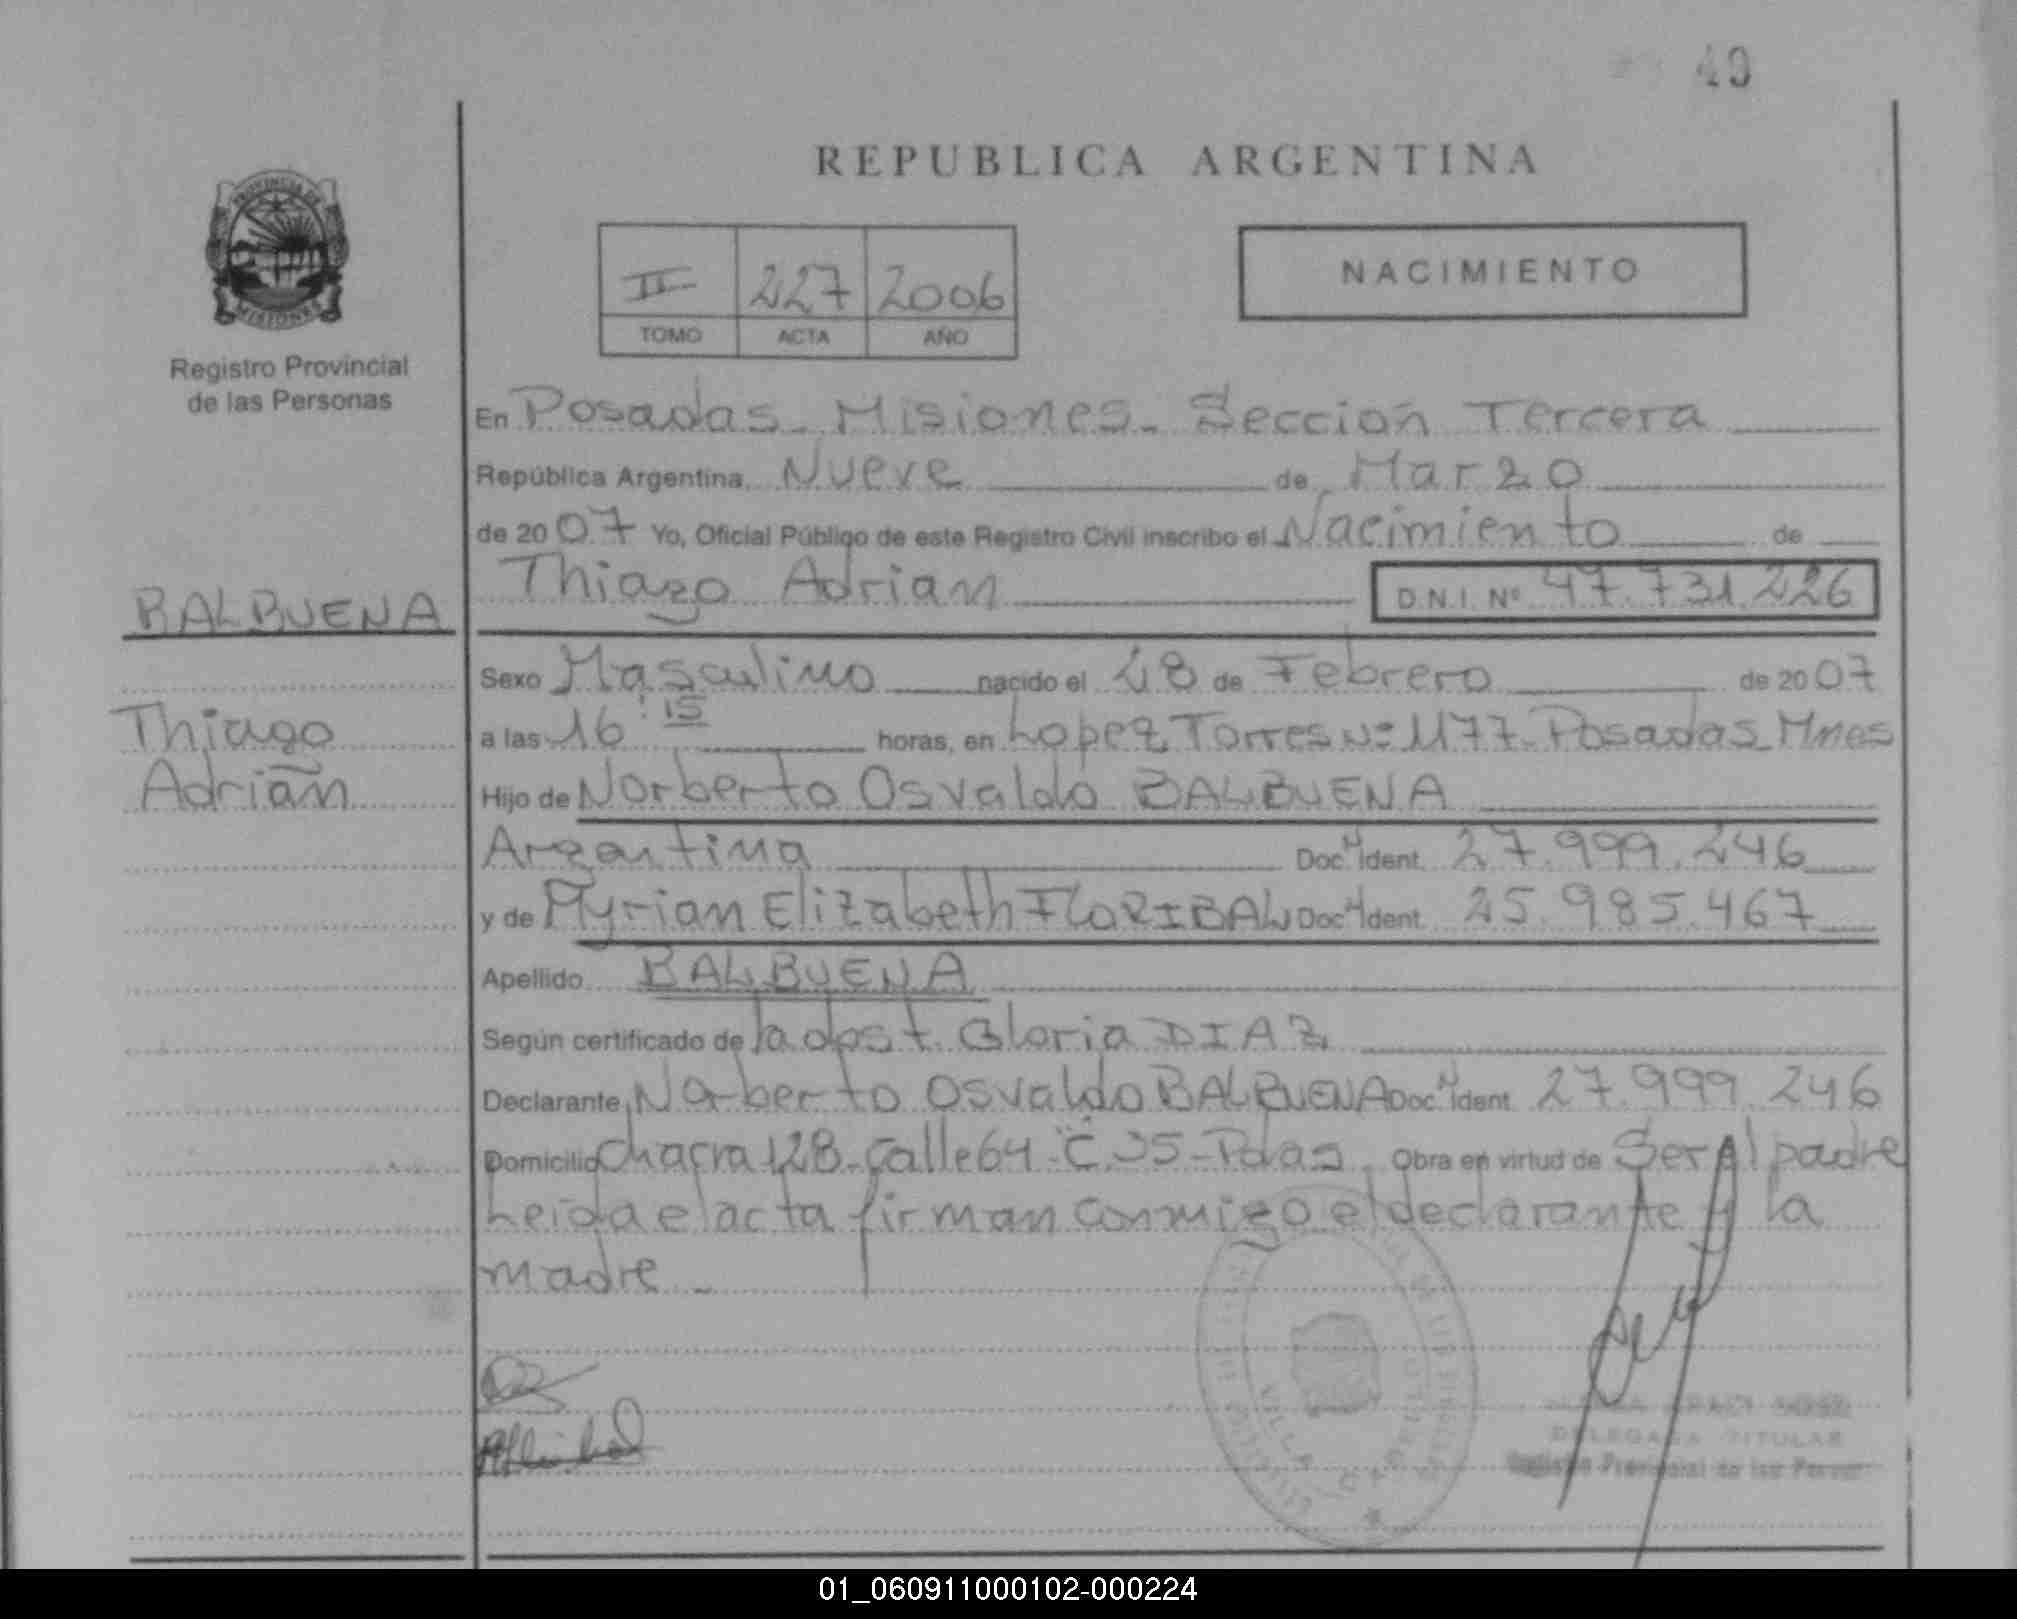 49
REPUBLICA ARGENTINA
PROVINCIA DE
MISIONES
Registro Provincial
de las Personas
II 227 2006
TOMO ACTA AÑO
NACIMIENTO
En Posadas - Misiones - Sección Tercera
República Argentina, Nueve de Marzo
de 2007 Yo, Oficial Público de este Registro Civil inscribo el Nacimiento de
Thiago Adrian D.N.I. Nº 47.731.226
BALBUENA
Thiago
Adrián
Sexo Masculino nacido el 28 de Febrero de 2007
a las 16:15 horas, en Lopez Torres Nº 1177 - Posadas - Mnes
Hijo de Norberto Osvaldo BALBUENA
Argentina Doc. Ident. 27.999.246
y de Myrian Elizabeth FLORIBAL Doc. Ident. 25.985.467
Apellido BALBUENA
Según certificado de la obst. Gloria DIAZ
Declarante Norberto Osvaldo BALBUENA Doc. Ident. 27.999.246
Domicilio Chacra 128 - Calle 64 - C. 35 - Pdas Obra en virtud de Ser el padre
Leida el acta firman conmigo el declarante y la
madre -
DELEGADA TITULAR
Registro Provincial de las
01_060911000102-000224